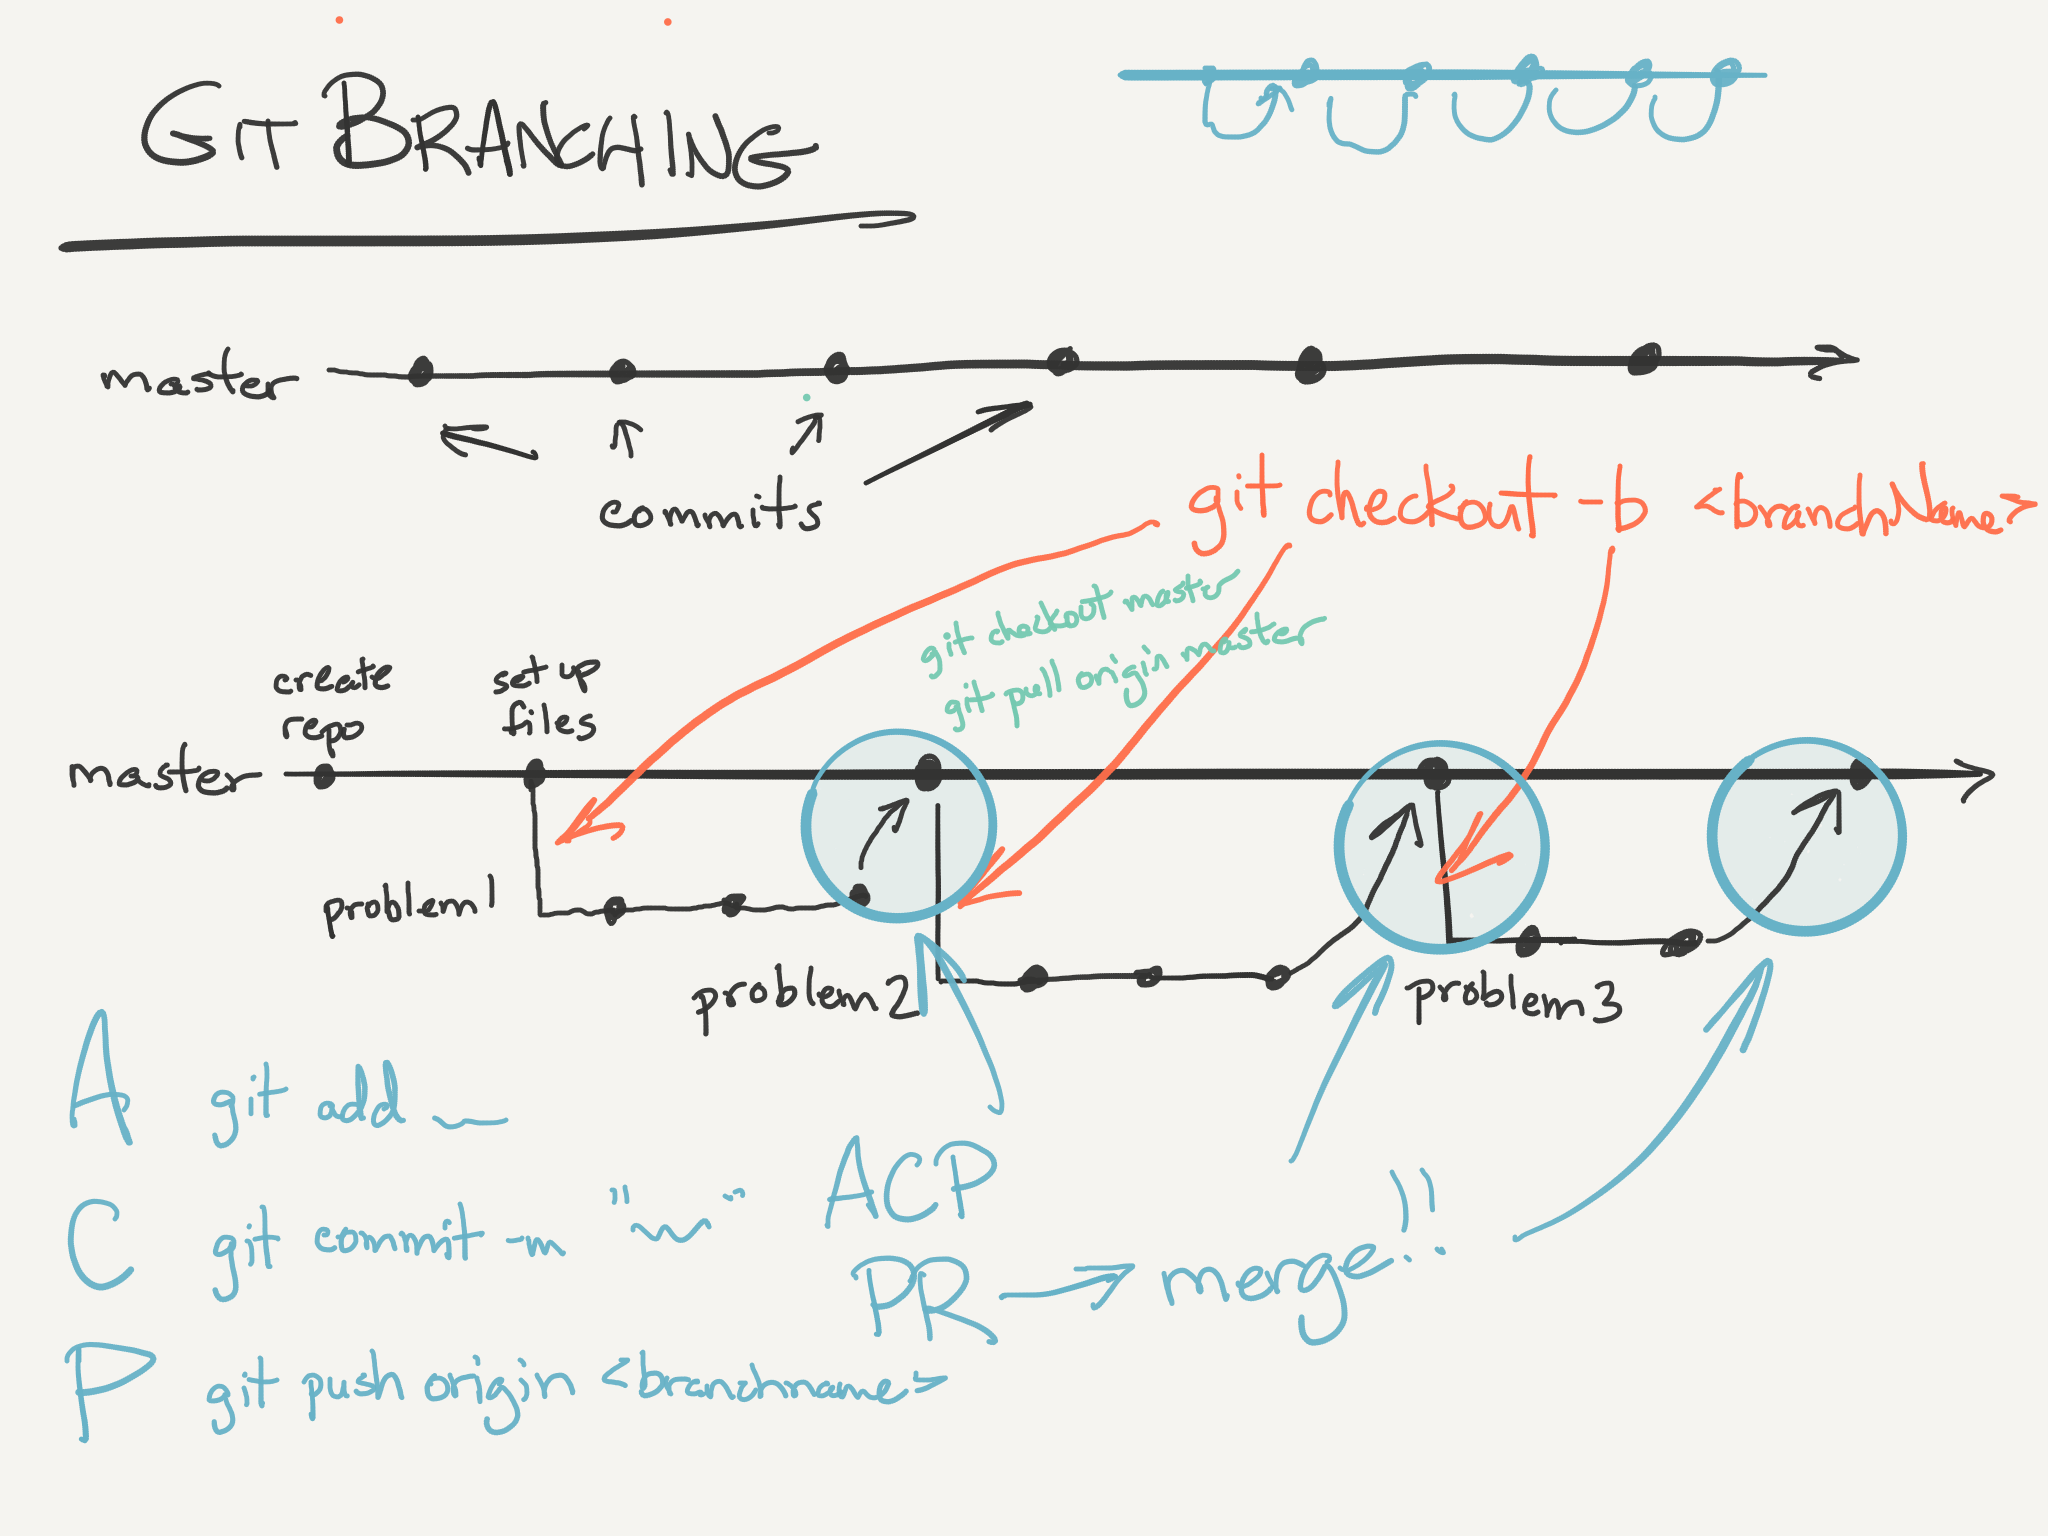 GIT BRANCHING
master
commits
git checkout -b <branchName>
git checkout master
git pull origin master
create
repo
set up
files
master
problem1
problem2
problem3
A git add __
C git commit -m "~"
P git push origin <branchname>
ACP
PR → merge!!